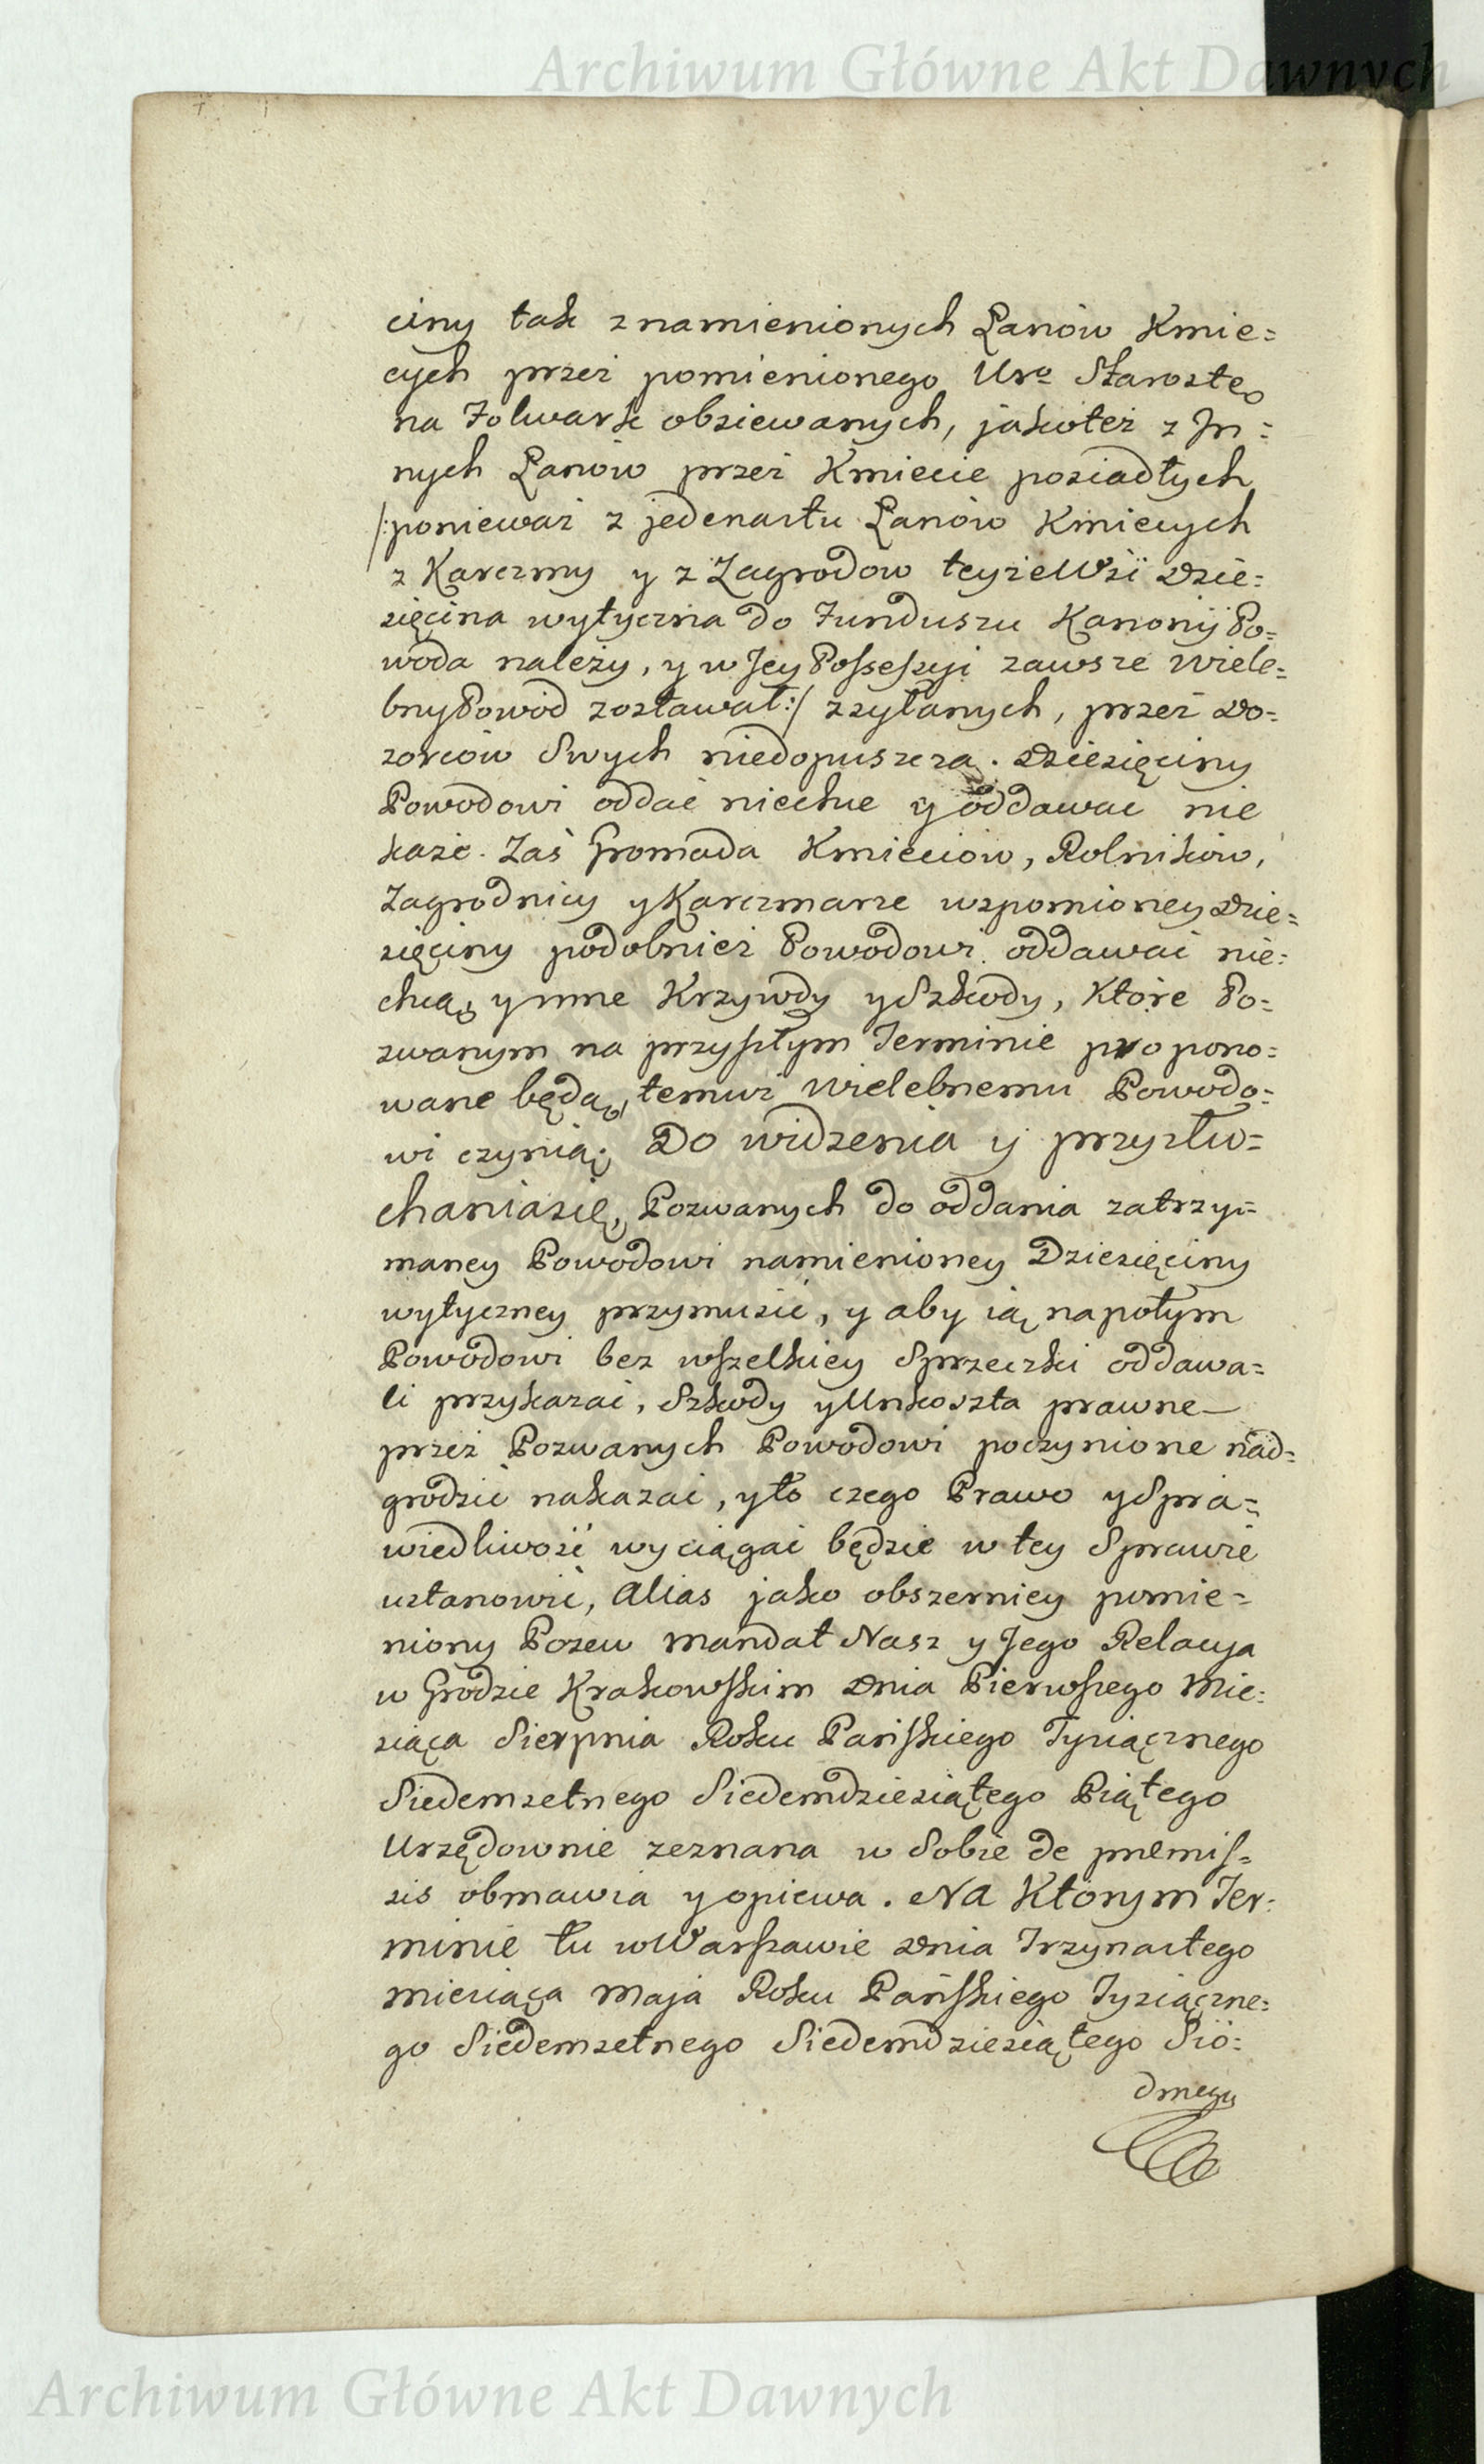 Archiwum Główne Akt Dawnych
ciny tak znamienionych Łanów Kmie=
cych przez pomienionego Uro Starostę
na Folwark obsiewanych, jakoteż z In=
nych Łanów przez Kmiecie posiadłych
/:ponieważ z jedenastu Łanów Kmiecych
z Karczmy y z Zagrodow teyże Wsi Dzie=
sięcina wytyczna do Funduszu Kanonij Po=
woda należy, y w Jey Possessyi zawsze Wiele=
bny Powód zostawał:/ zsyłanych, przez Do=
zorców Swych niedopuszcza. Dziesięciny
Powodowi oddać niechce y oddawać nie
każe. Zaś Gromada Kmieciów, Rolników,
Zagrodnicy y Karczmarze wspomioney Dzie=
sięciny podobnież Powodowi oddawać nie=
chcą, y inne Krzywdy y Szkody, Które Po=
zwanym na przyszłym Terminie propono=
wane będą, temuż Wielebnemu Powodo=
wi czynią; Do widzenia y przysłu=
chania się, Pozwanych do oddania zatrzy=
maney Powodowi namienioney Dziesięciny
wytyczney przymusić, y aby ią napotym
Powodowi bez wszelkiey Sprzeczki oddawa=
li przykazać, Szkody y Unkoszta prawne
przez Pozwanych Powodowi poczynione nad=
grodzić nakazać, y to czego Prawo y Spra=
wiedliwość wyciągać będzie w tey Sprawie
ustanowić, Alias jako obszerniey pomie=
niony Pozew Mandat Nasz y Jego Relacya
w Grodzie Krakowskim Dnia Pierwszego Mie=
siąca Sierpnia Roku Pańskiego Tysiącznego
Siedemsetnego Siedemdziesiątego Piątego
Urzędownie zeznana w Sobie de premis=
sis obmawia y opiewa. Na Ktorym Ter=
minie tu w Warszawie Dnia Trzynastego
Miesiąca Maja Roku Pańskiego Tysiączne=
go Siedemsetnego Siedemdziesiątego Sió=
dmego
Archiwum Główne Akt Dawnych